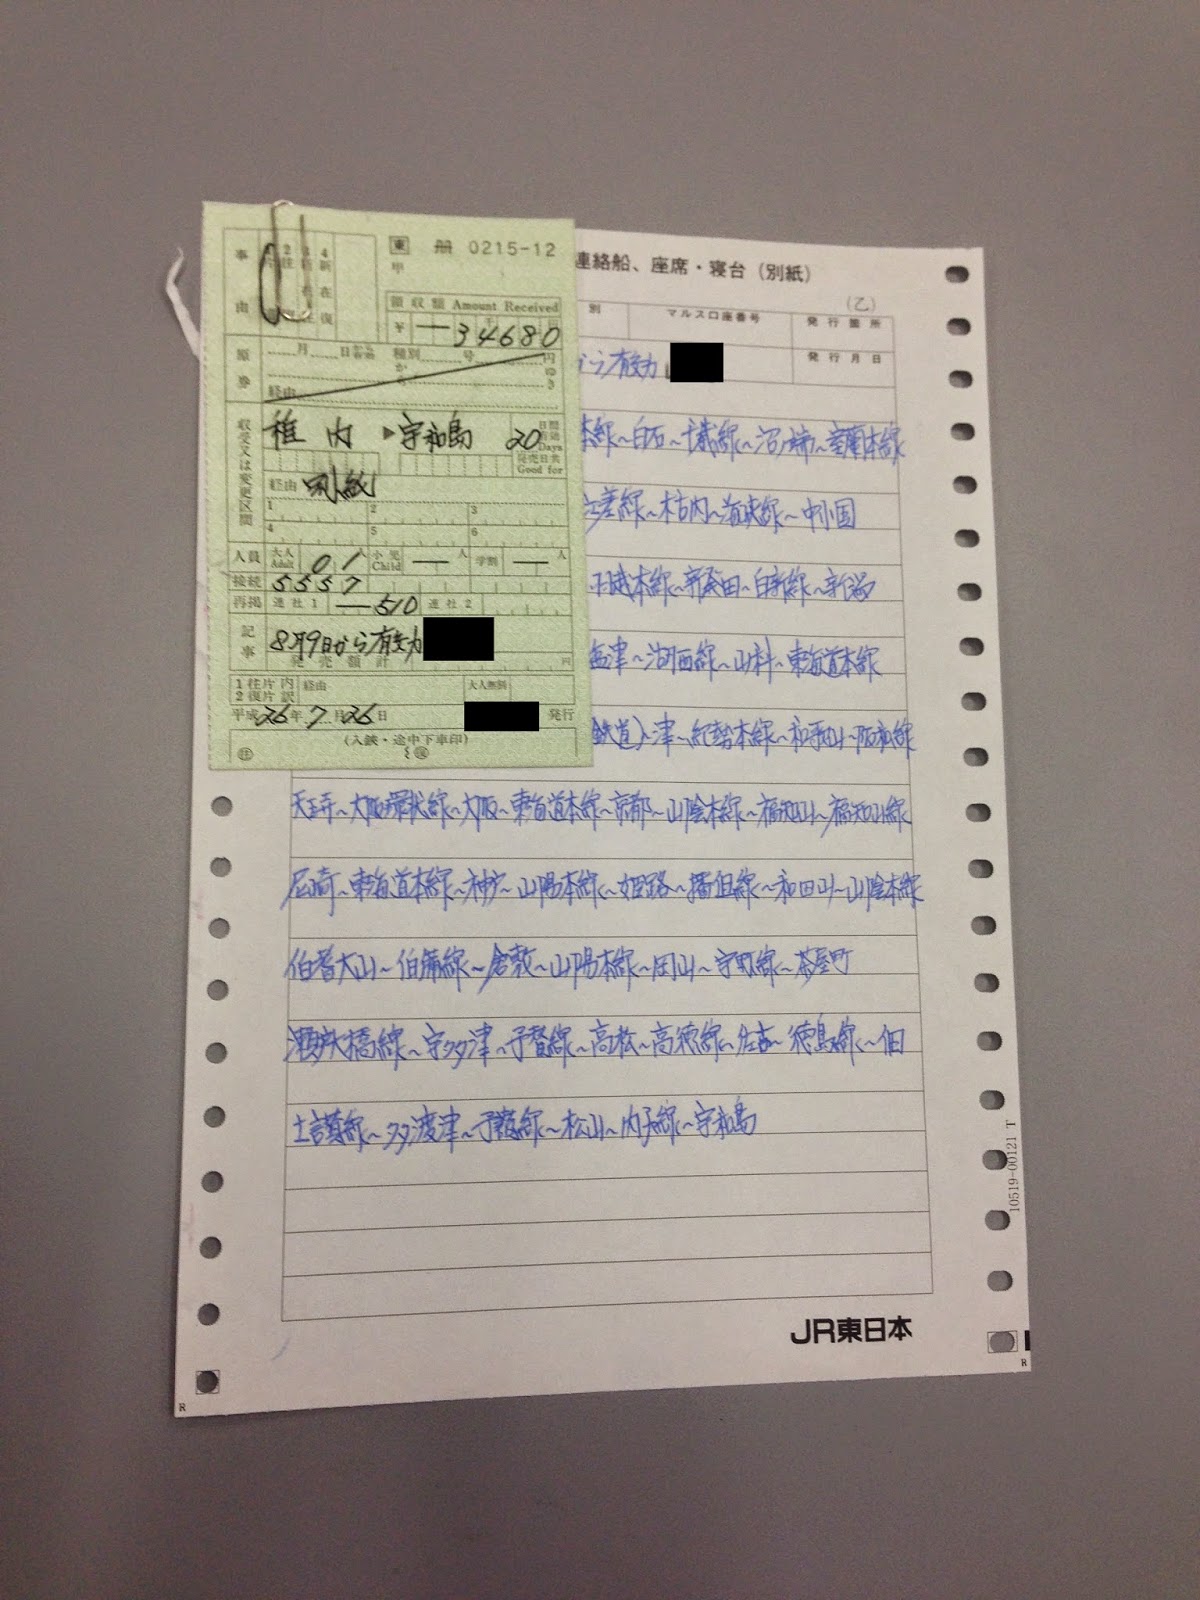 東 冊 0215-12
甲
事由
2往 4新在復
領収額 Amount Received
¥ ー34680
原券
月 日 種別 号 円
から ゆき
経由
収受又は変更区間
稚内 ▶ 宇和島 20 日間有効 Days
発売日共 Good for
経由 別紙
1 2 3
4 5 6
人員 大人 Adult 01人 小児 Child ー人 学割 ー人
接続 5557
再掲 連社1 ー510 連社2
記事 8月9日から有効
発売額計 円
1往片内 経由 大人無割
2復片訳
平成26年7月26日 発行
(入鋏・途中下車印)
連絡船、座席・寝台(別紙)
(乙)
別 マルス口座番号 発行箇所
発行月日
から有効
本線~白石~千歳線~沼ノ端~室蘭本線
江差線~木古内~海峡線~中小国
羽越本線~新発田~白新線~新潟
塩津~湖西線~山科~東海道本線
鉄道)~津~紀勢本線~和歌山~阪和線
天王寺~大阪環状線~大阪~東海道本線~京都~山陰本線~福知山~福知山線
尼崎~東海道本線~神戸~山陽本線~姫路~播但線~和田山~山陰本線
伯耆大山~伯備線~倉敷~山陽本線~岡山~宇野線~茶屋町
瀬戸大橋線~宇多津~予讃線~高松~高徳線~佐古~徳島線~佃
土讃線~多度津~予讃線~松山~内子線~宇和島
10519-00121 T
JR東日本
R
R